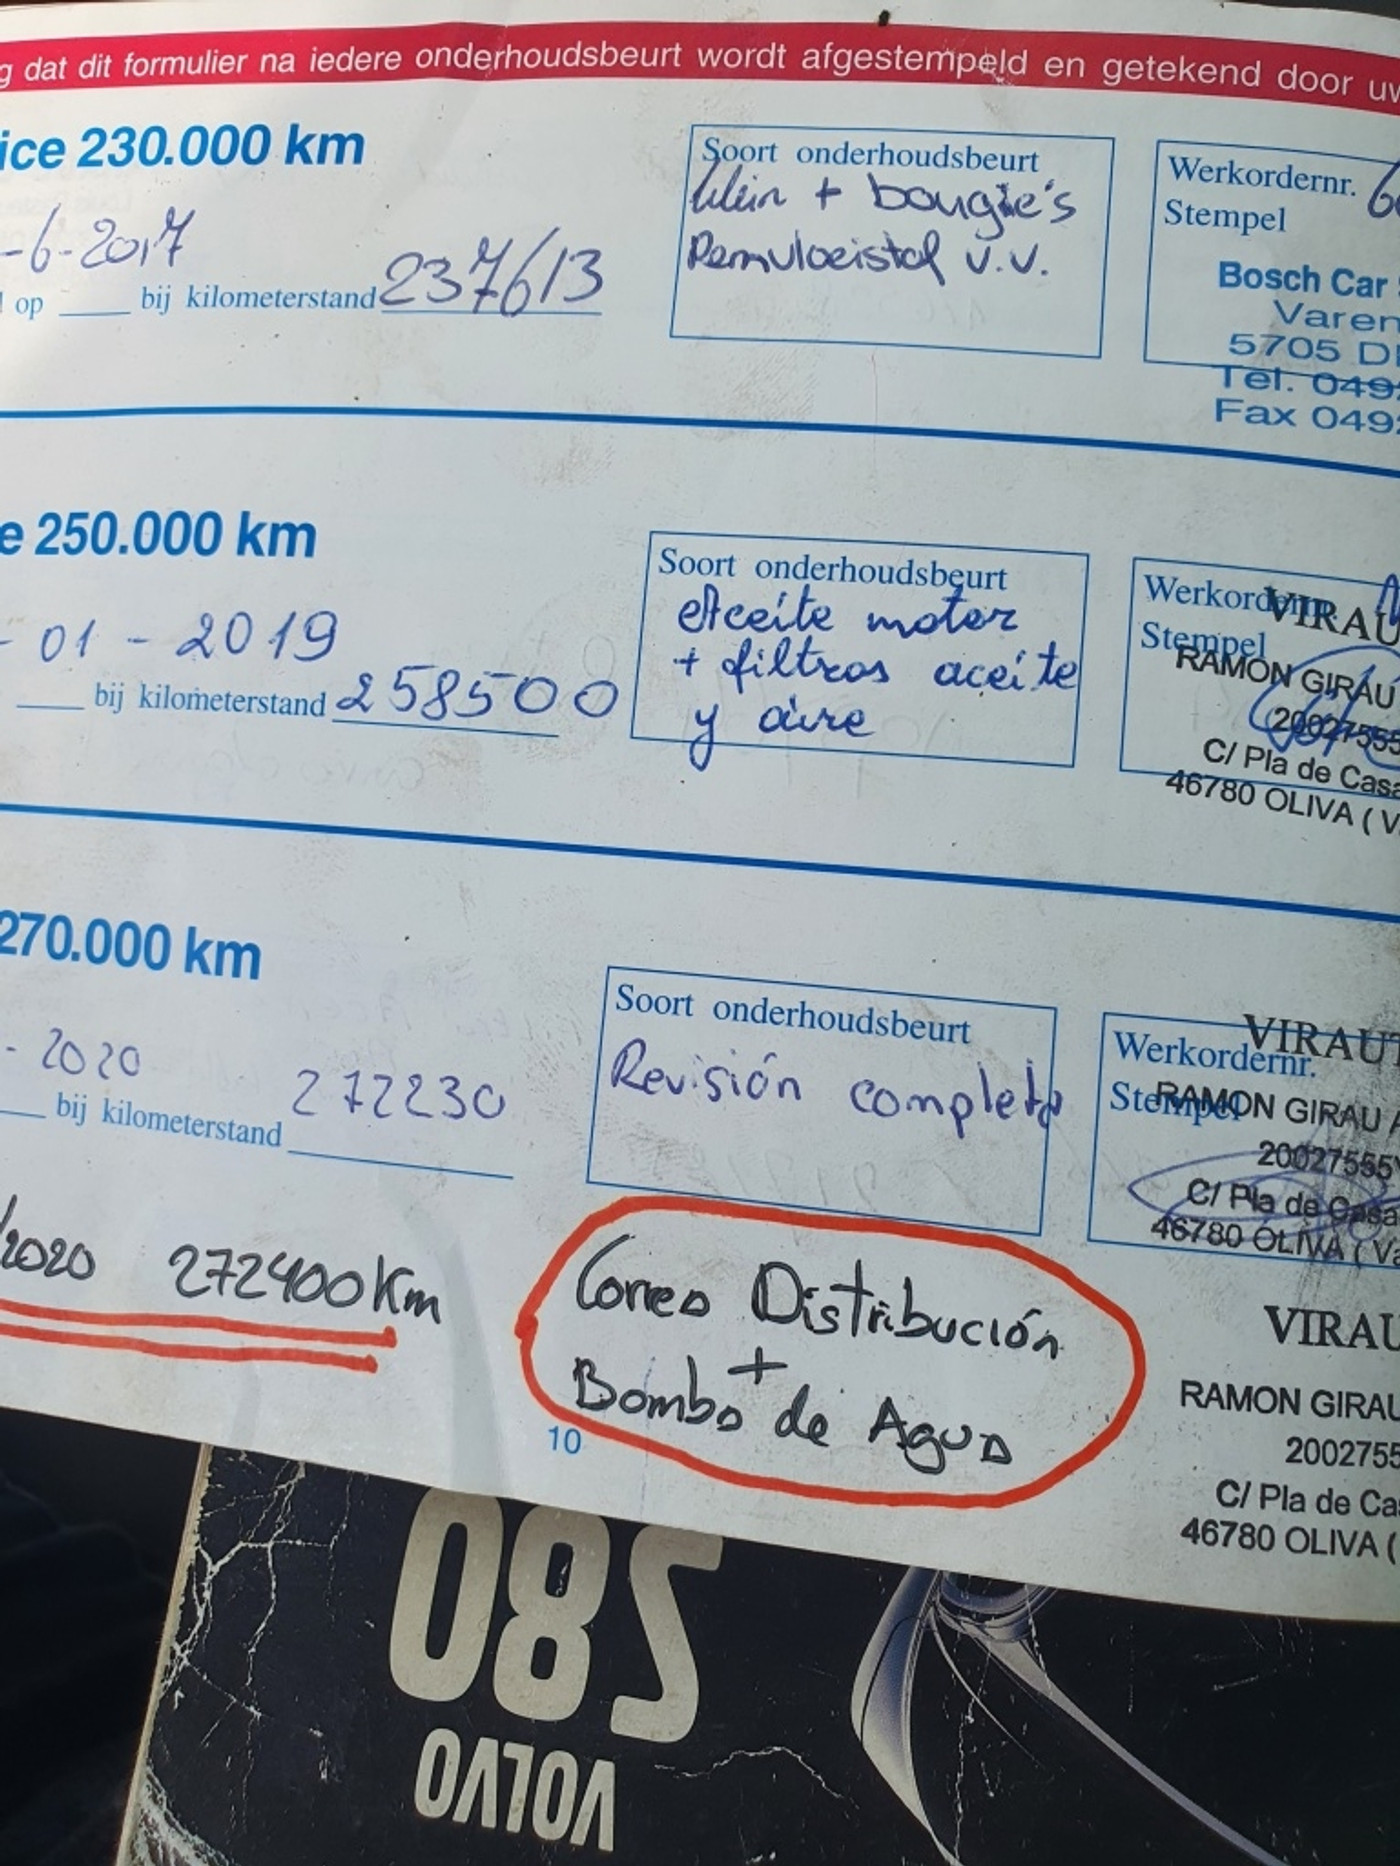 g dat dit formulier na iedere onderhoudsbeurt wordt afgestempeld en getekend door uw
ice 230.000 km
-6-2017
op ____ bij kilometerstand 237613
Soort onderhoudsbeurt
klein + bougie's
Remvloeistof v.v.
Werkordernr. 6
Stempel
Bosch Car
Varen
5705 D
Tel. 049
Fax 049
e 250.000 km
- 01 - 2019
____ bij kilometerstand 258500
Soort onderhoudsbeurt
Aceite motor
+ filtros aceite
y aire
Werkordernr.
Stempel
VIRAU
RAMON GIRAU
20027555
C/ Pla de Casa
46780 OLIVA ( V
270.000 km
- 2020
____ bij kilometerstand 272230
Soort onderhoudsbeurt
Revisión completa
Werkordernr.
Stempel
VIRAUT
RAMON GIRAU A
20027555
C/ Pla de Casa
46780 OLIVA ( Va
/2020 272400 Km
Correa Distribución
+
Bomba de Agua
VIRAU
RAMON GIRAU
2002755
C/ Pla de Ca
46780 OLIVA (
10
S80
VOLVO